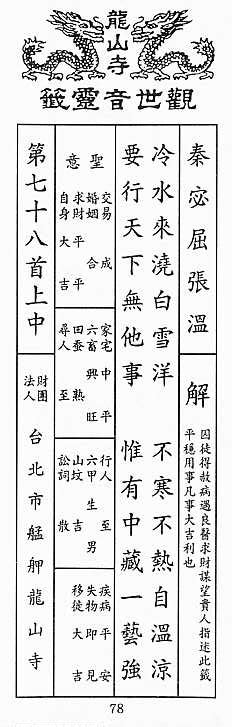 龍山寺
觀世音靈籤
秦宓屈張溫
解
因徒得赦病遇良醫求財謀望貴人指述此籤
平穩用事凡事大吉利也
冷水來澆白雪洋 不寒不熱自溫涼
要行天下無他事 惟有中藏一藝強
聖意
交易 成
婚姻 合
求財 平
自身 大吉
家宅 中平
六畜 興旺
田蚕 熟
尋人 至
行人 至
六甲 生男
山墳 吉
訟詞 散
疾病 平安
失物 即見
移徙 大吉
第七十八首上中
財團法人
台北市艋舺龍山寺
78